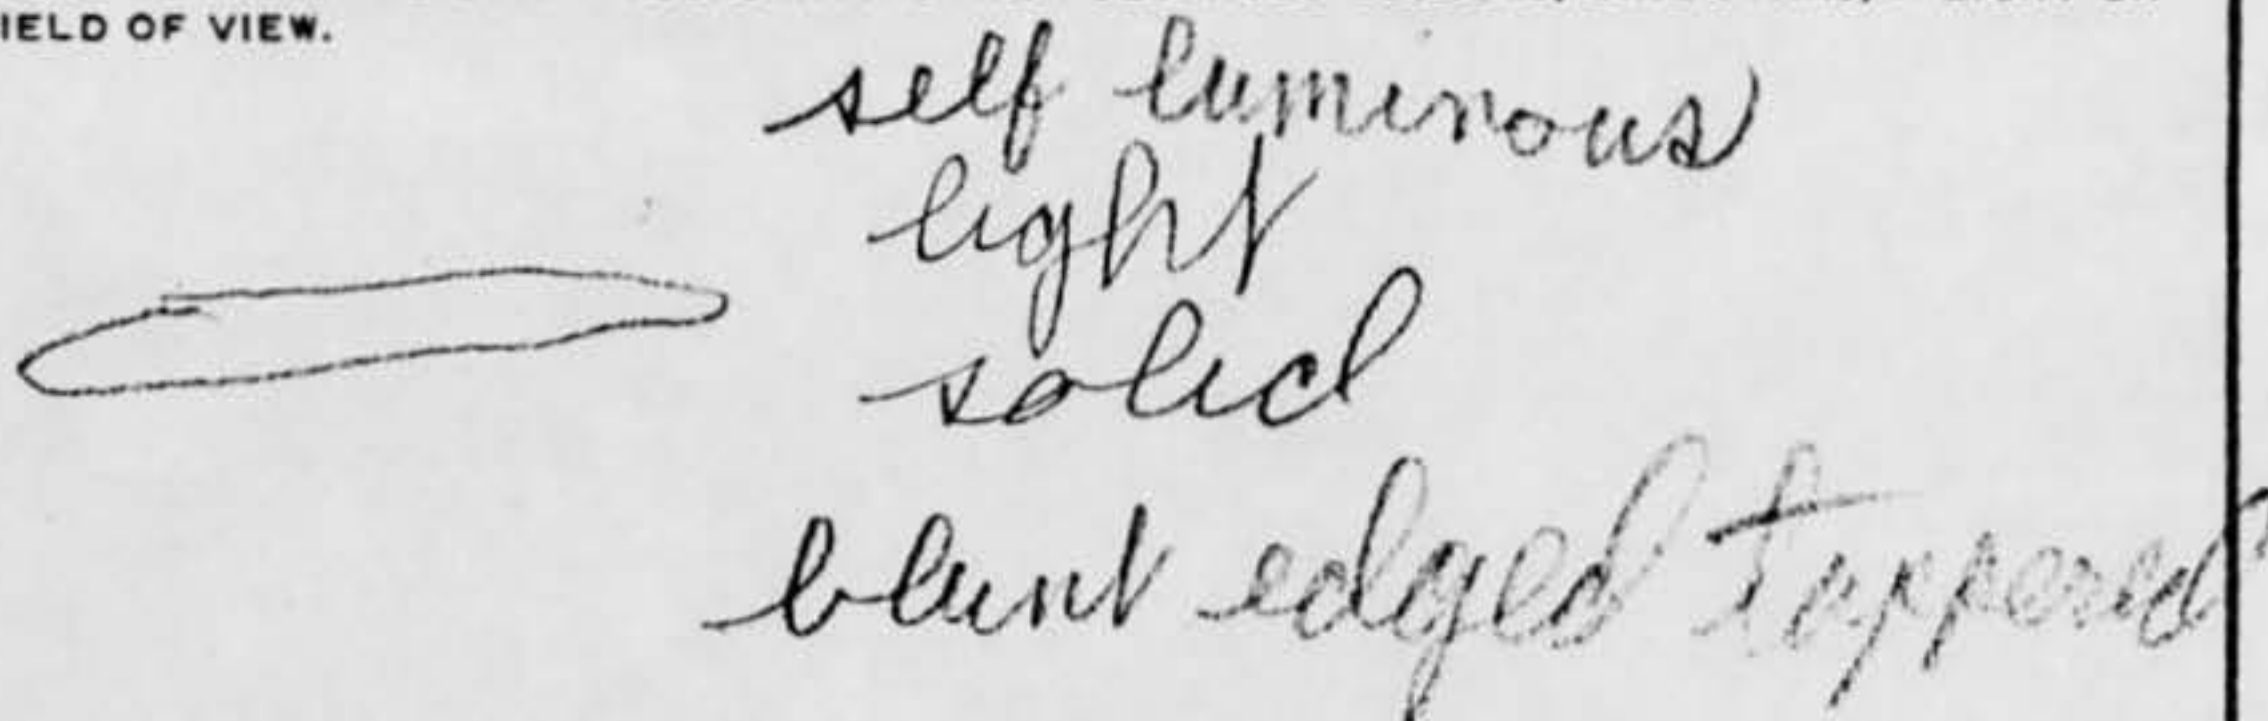 IELD OF VIEW.
self luminous
light
solid
blunt edged tappered